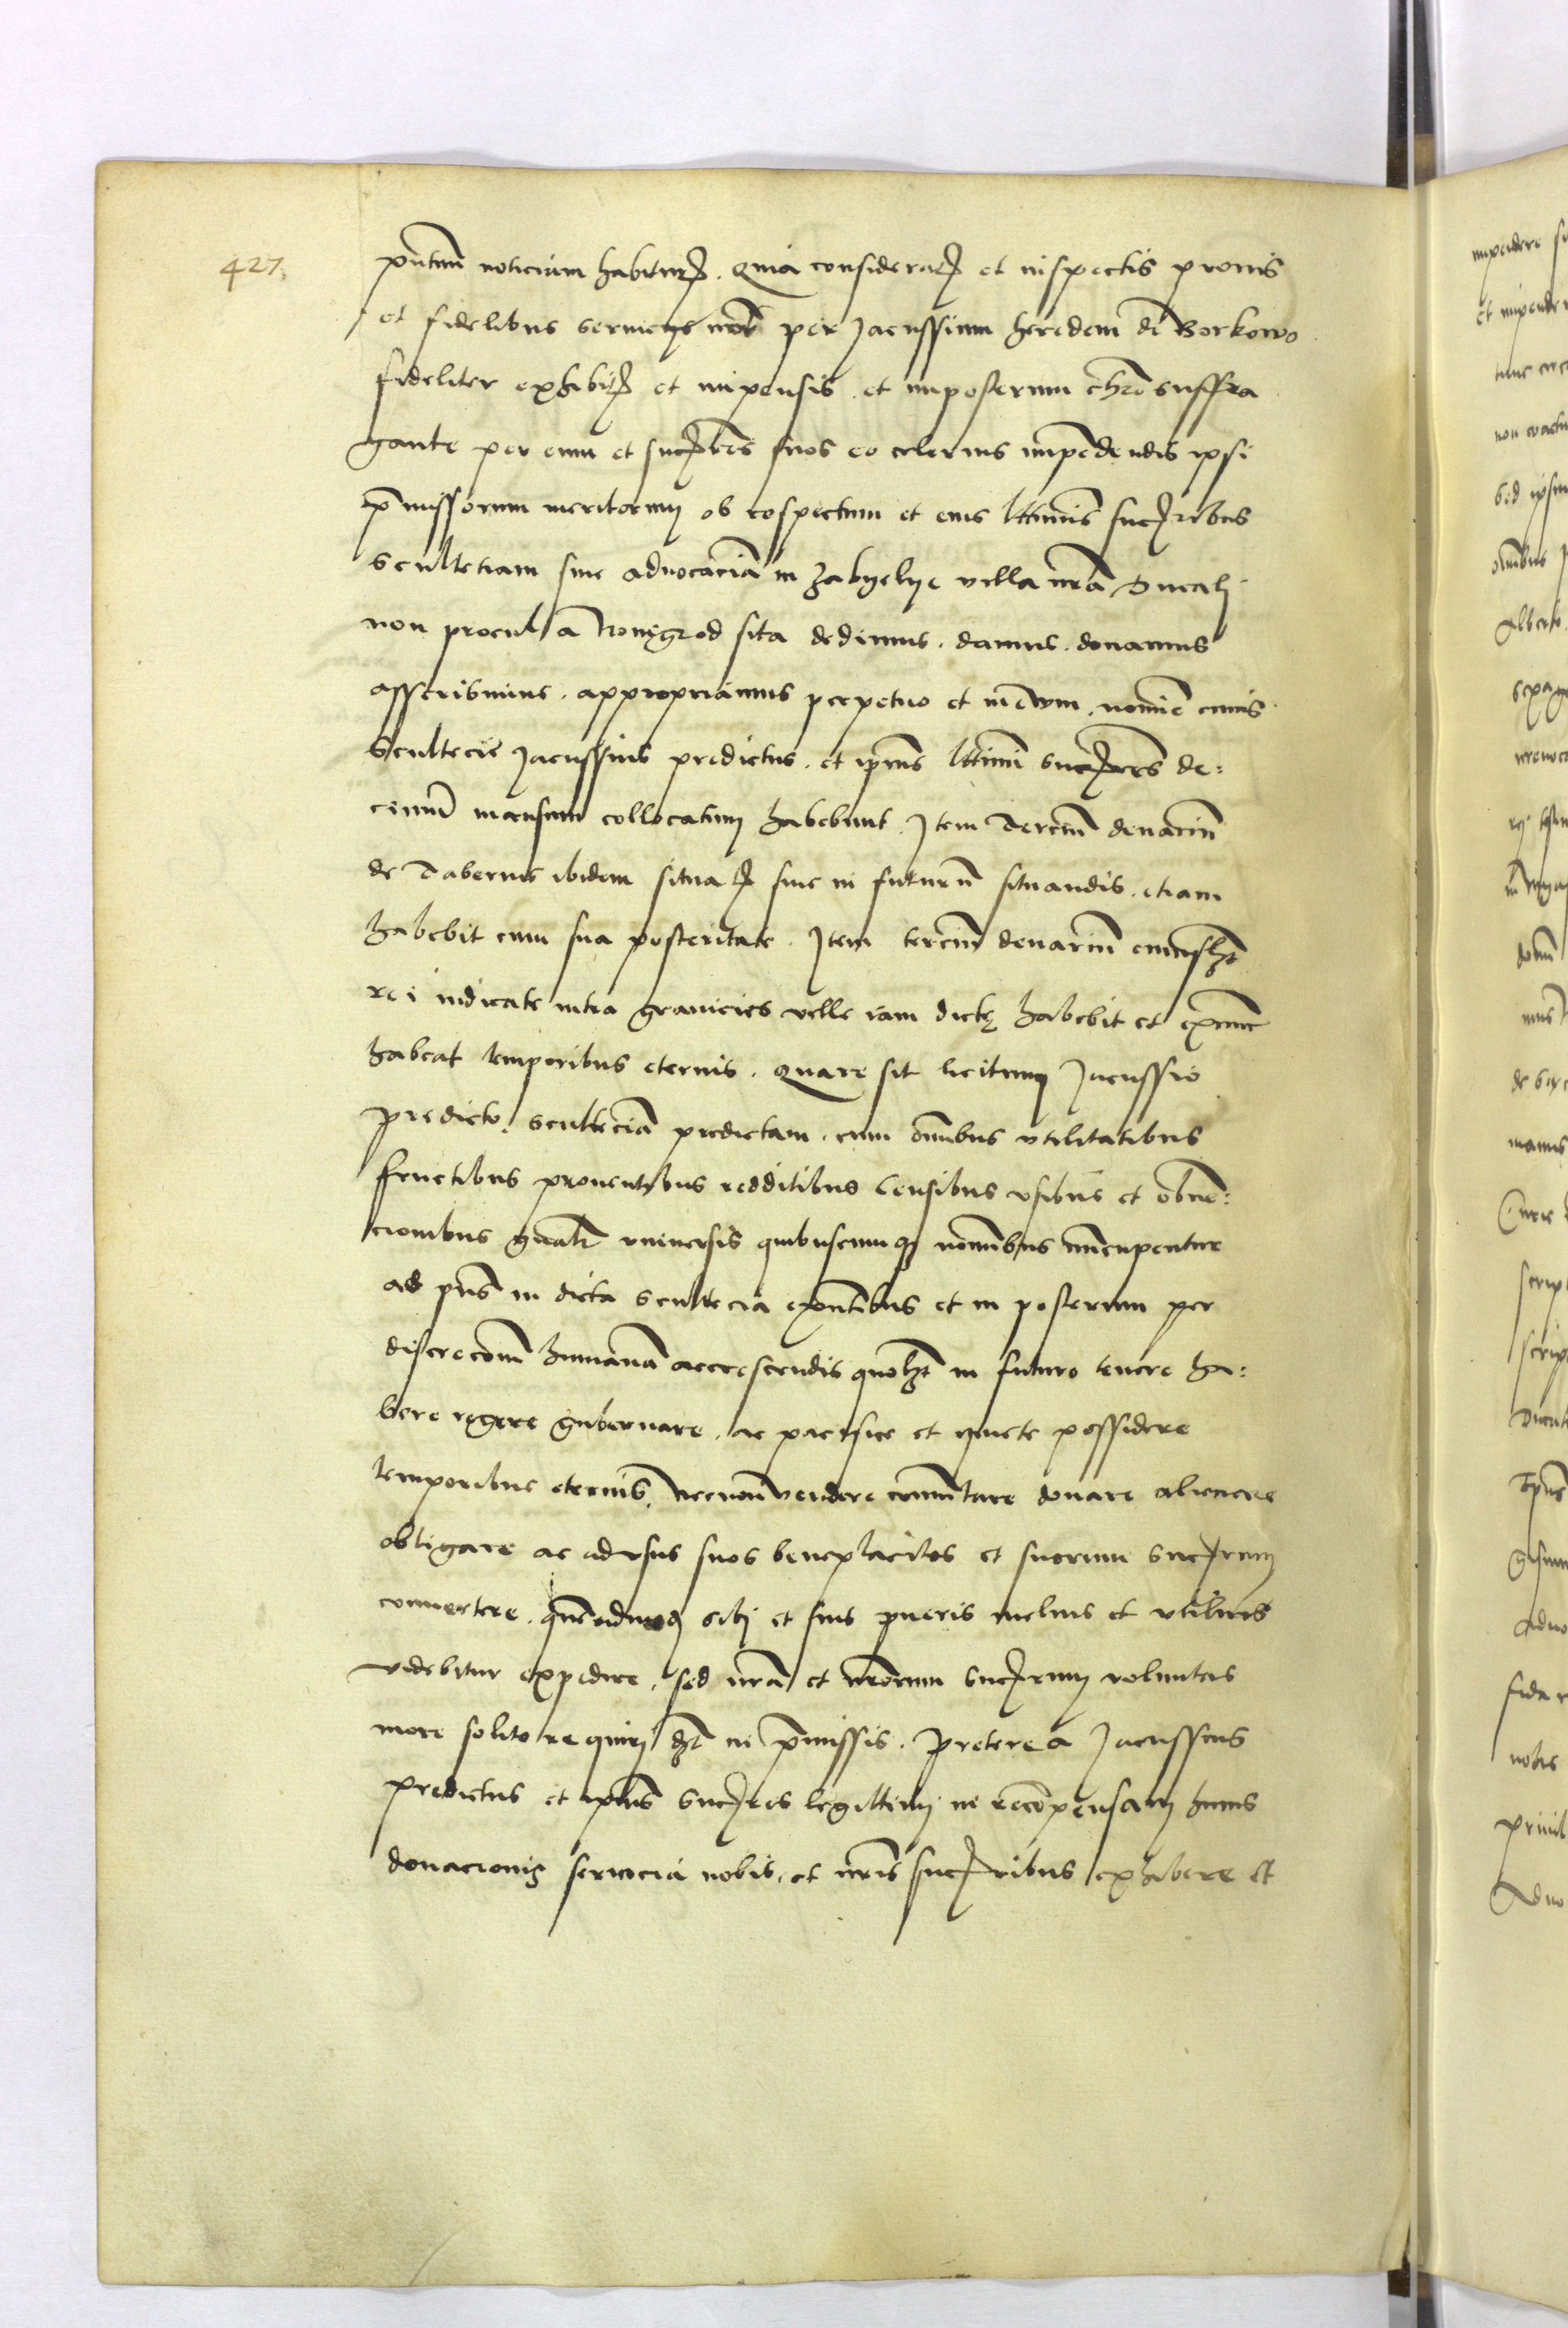 427.
pntium noticiam habituris. Quia consideratis et inspectis promis
et fidelibus serviciis per Jacussium heredem de Borkowo
fideliter exhibitis et impensis et imposterum chro suffra
gante per eum et suc̄res suos eo celerius impendendis ipsi
pmissorum meritorum ob respectum et eius lttimis suc̄ribus
scultetiam sive advocaciā in Zabyelye villa nrā Ducali
non procul a Novigrod sita dedimus. damus. donamus
asscribimus. appropriamus perpetuo et in ewum. nomie cuius
Scultecie Jacussius predictus. et ipius lttimi succres de=
cimū mansum collocatum habebunt. Item Terciū denariū
de Tabernis ibidem situatis sive in futurū situandis. etiam
habebit cum sua posteritate. Item terciū denariū cuiuslibet
rei iudicate intra granicies ville iam dictę habebit et extunc
habeat temporibus eternis. Quare sit licitum Jacussio
predicto. scultetiā predictam. cum omibus vtilitatibus
fructibus proventibus redditibus Censibus vsibus et obven=
cionibus gnalr vniversis quibuscumque nominibus nuncupentur
ad pns in dicta scultecia exntibus et in posterum per
discrecōm humanā accrescendis quolibet in futuro tenere ha=
bere regere gubernare. ac pacifice et quiete possidere
temporibus eternis. necnon vendere comutare donare alienare
obligare ac ad vsus suos beneplacitos et suorum sucrum
convertere. quēadmodū sibi et suis pueris melius et vtilius
videbitur expedire. sed nrā et nrorum sucrum voluntas
more solito requiri dz in pmissis. Preterea Jacussius
predictus et ipius sucres legittimi in recōpensam huius
donacionis servicia nobis. et nris sucribus exhibere et